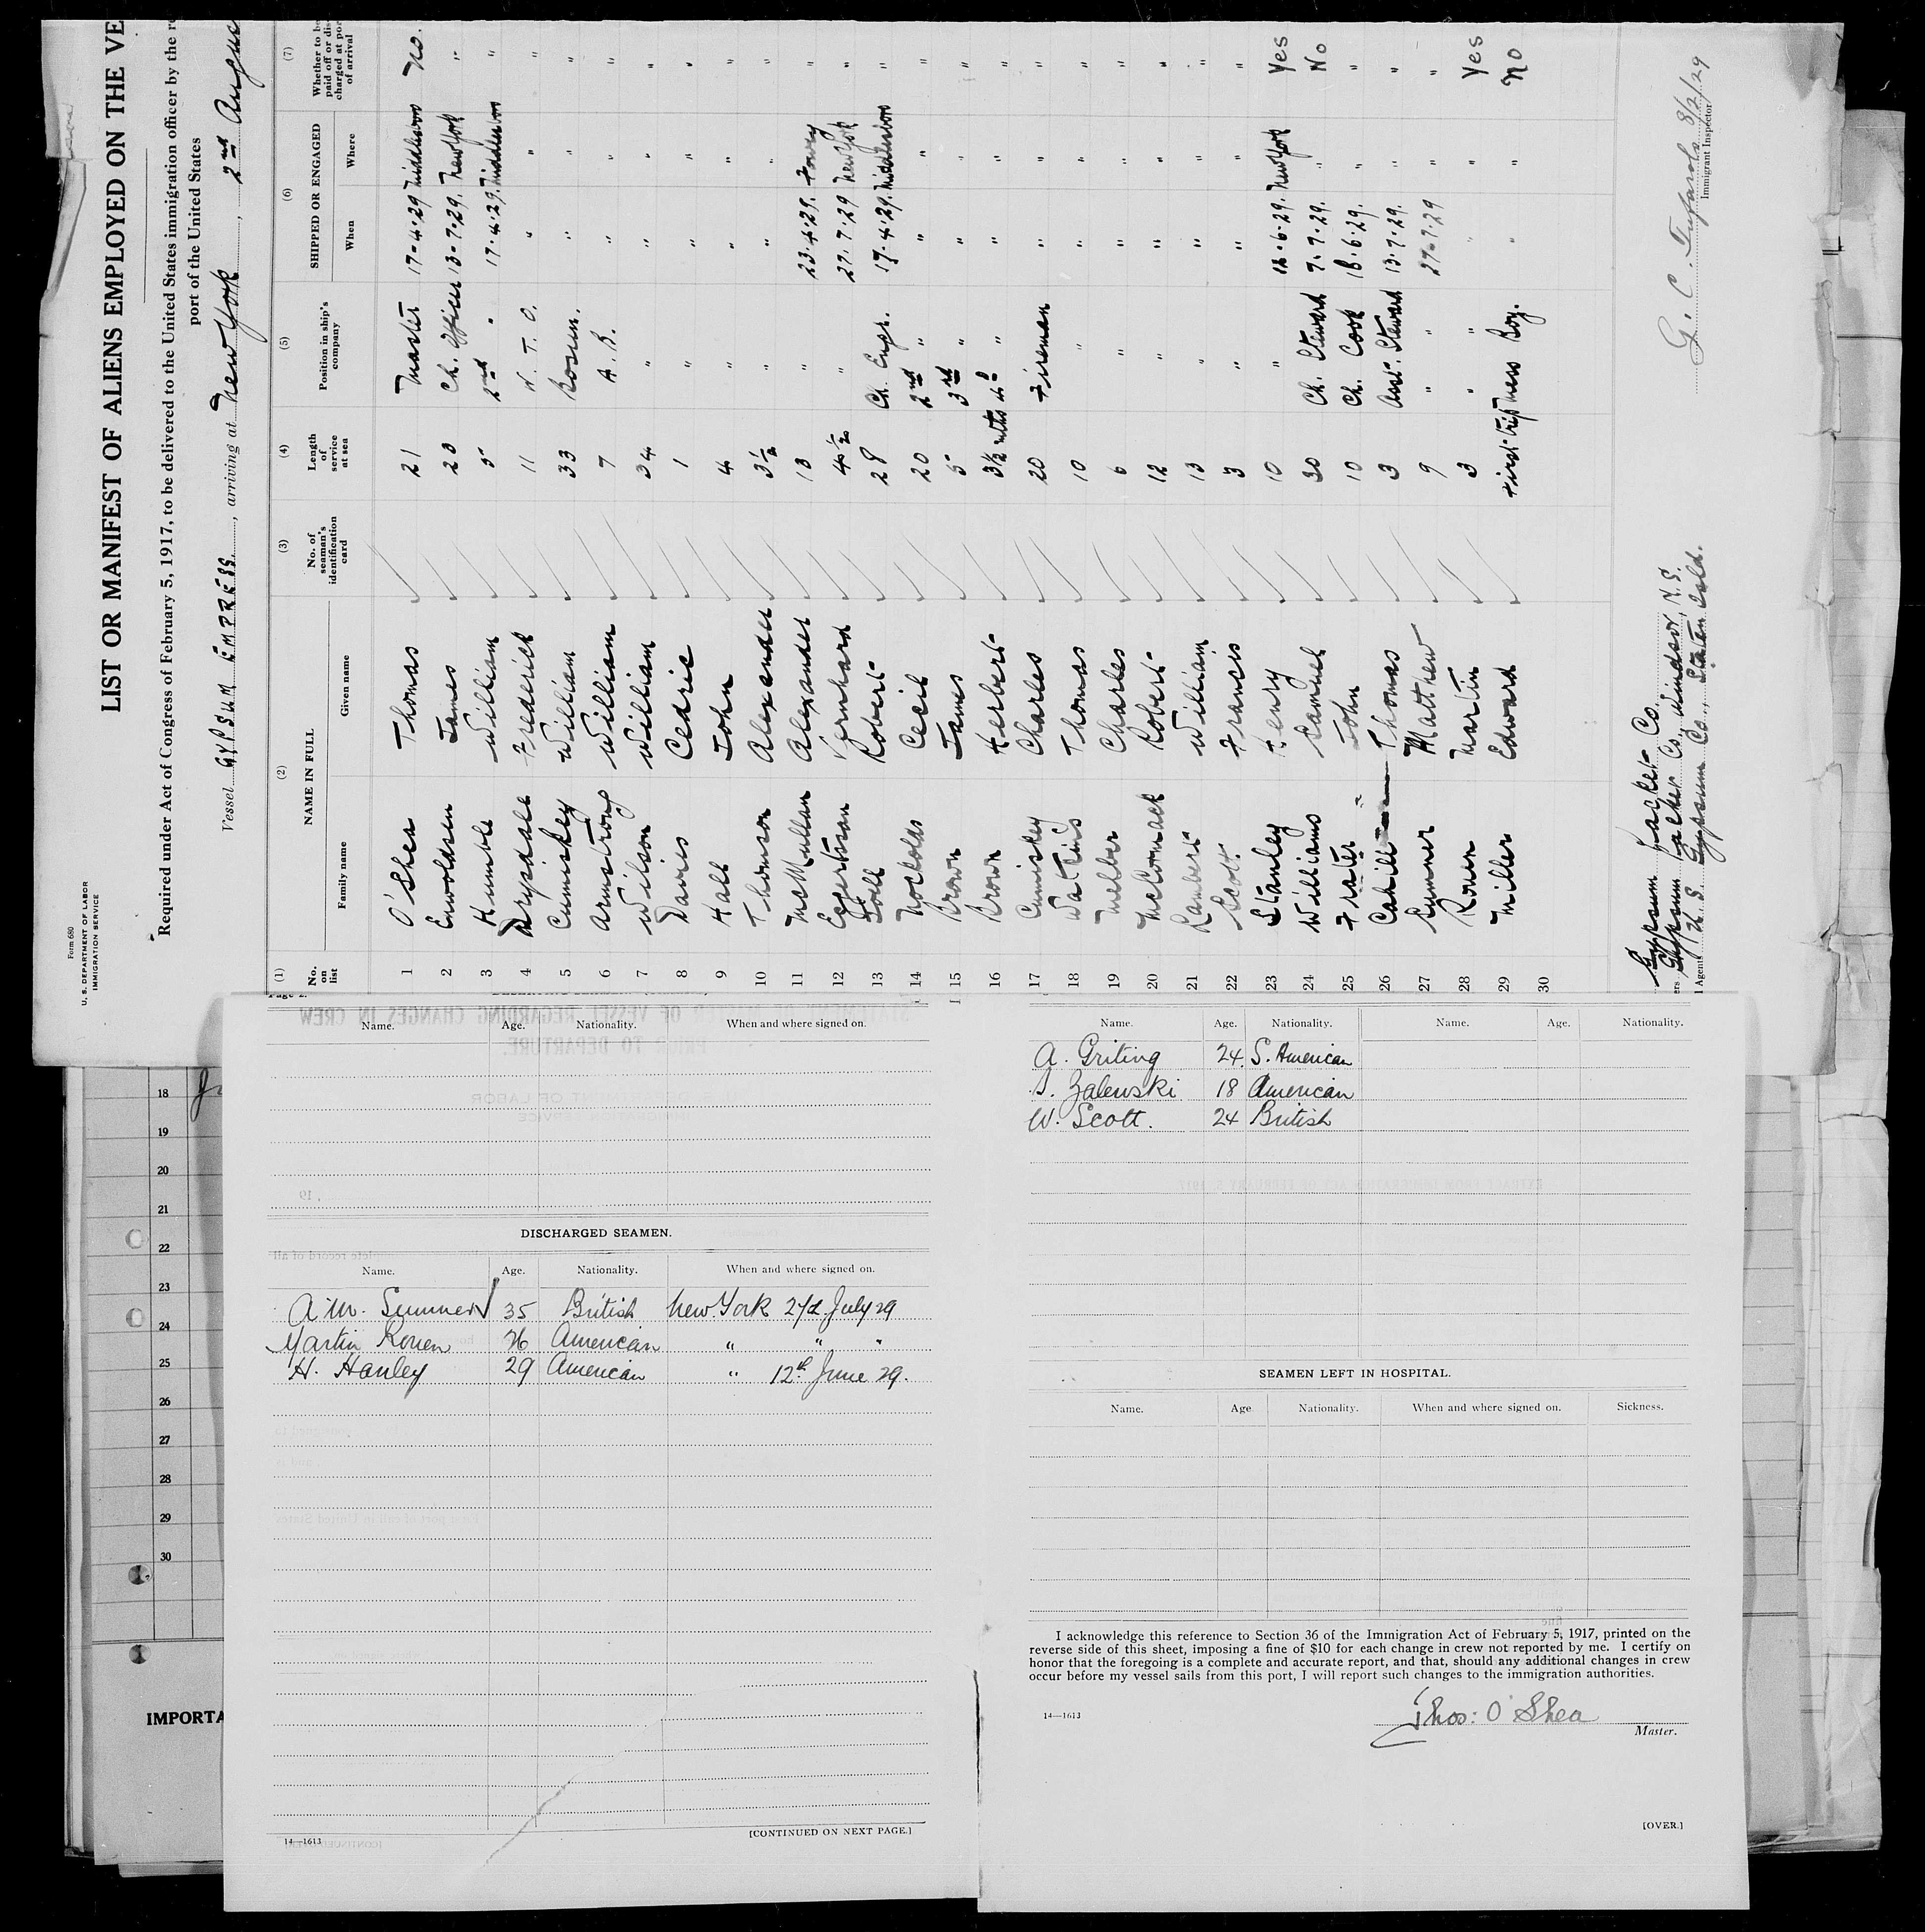 Form 680
U. S. DEPARTMENT OF LABOR
IMMIGRATION SERVICE
LIST OR MANIFEST OF ALIENS EMPLOYED ON THE VE
Required under Act of Congress of February 5, 1917, to be delivered to the United States immigration officer by the r
port of the United States
Vessel GYPSUM EMPRESS, arriving at New York, 2nd Augu
(1) (2) (3) (4) (5) (6) (7)
No. on list NAME IN FULL Family name Given name No. of seaman's identification card Length of service at sea Position in ship's company SHIPPED OR ENGAGED When Where Whether to be paid off or dis charged at por of arrival
1 O'Shea Thomas 21 Master 17-4-29 Middlesboro No.
2 Enwoldsen James 23 Ch. Officer 13-7-29. New York "
3 Humble William 5 2nd " 17-4-29. Middlesboro "
4 Drysdale Frederick 11 W. T. O. " " "
5 Cumiskey William 33 Bosun. " " "
6 Armstrong William 7 A. B. " " "
7 Wilson William 34 " " " "
8 Davies Cedric 1 " " " "
9 Hall John 4 " " " "
10 Thomson Alexander 3½ " " " "
11 McMullan Alexander 13 " 23.4.29. Fowey "
12 Egertsson Bernhard 4½ " 27.7.29 New York "
13 Robert 28 Ch. Engr. 17.4.29. Middlesboro "
14 Cecil 20 2nd " " " "
15 Brown James 5 3rd " " " "
16 Brown Herbert 3½ mths 4th " " " "
17 Cumiskey Charles 20 Fireman " " "
18 Watkins Thomas 10 " " " "
19 Melber Charles 6 " " " "
20 McCormack Robert 12 " " " "
21 Lambert William 13 " " " "
22 Scott Francis 3 " " " "
23 Stanley Henry 10 " 12.6.29. New York Yes
24 Williams Samuel 30 Ch. Steward 7.7.29. " No
25 Frater John 10 Ch. Cook 18.6.29. " "
26 Cahill Thomas 3 Asst. Steward 13.7.29. " "
27 Sumner Matthew 9 " " 27.7.29 " "
28 Ronen Martin 3 " " " " Yes
29 Miller Edward First trip Mess Boy. " " No
30
Gypsum Packet Co.
ers Gypsum Packet Co. Windsor, N.S.
l Agents U S Gypsum Co., Staten Isld.
G. C. Tufarolo 8/2/29
Immigrant Inspector
Page 2.
Name. Age. Nationality. When and where signed on.
DISCHARGED SEAMEN.
Name. Age. Nationality. When and where signed on.
A. M. Sumner 35 British New York 27th July 29
Martin Ronen 26 American " " "
H. Hanley 29 American " 12th June 29.
14—1613
[CONTINUED ON NEXT PAGE.]
Name. Age. Nationality. Name. Age. Nationality.
A. Griting 24. S. American
S. Zalenski 18 American
W. Scott. 24 British
SEAMEN LEFT IN HOSPITAL.
Name. Age Nationality. When and where signed on. Sickness.
I acknowledge this reference to Section 36 of the Immigration Act of February 5, 1917, printed on the
reverse side of this sheet, imposing a fine of $10 for each change in crew not reported by me. I certify on
honor that the foregoing is a complete and accurate report, and that, should any additional changes in crew
occur before my vessel sails from this port, I will report such changes to the immigration authorities.
14—1613
Thos: O'Shea
Master.
[OVER.]
18
19
20
21
22
23
24
25
26
27
28
29
30
IMPORTA